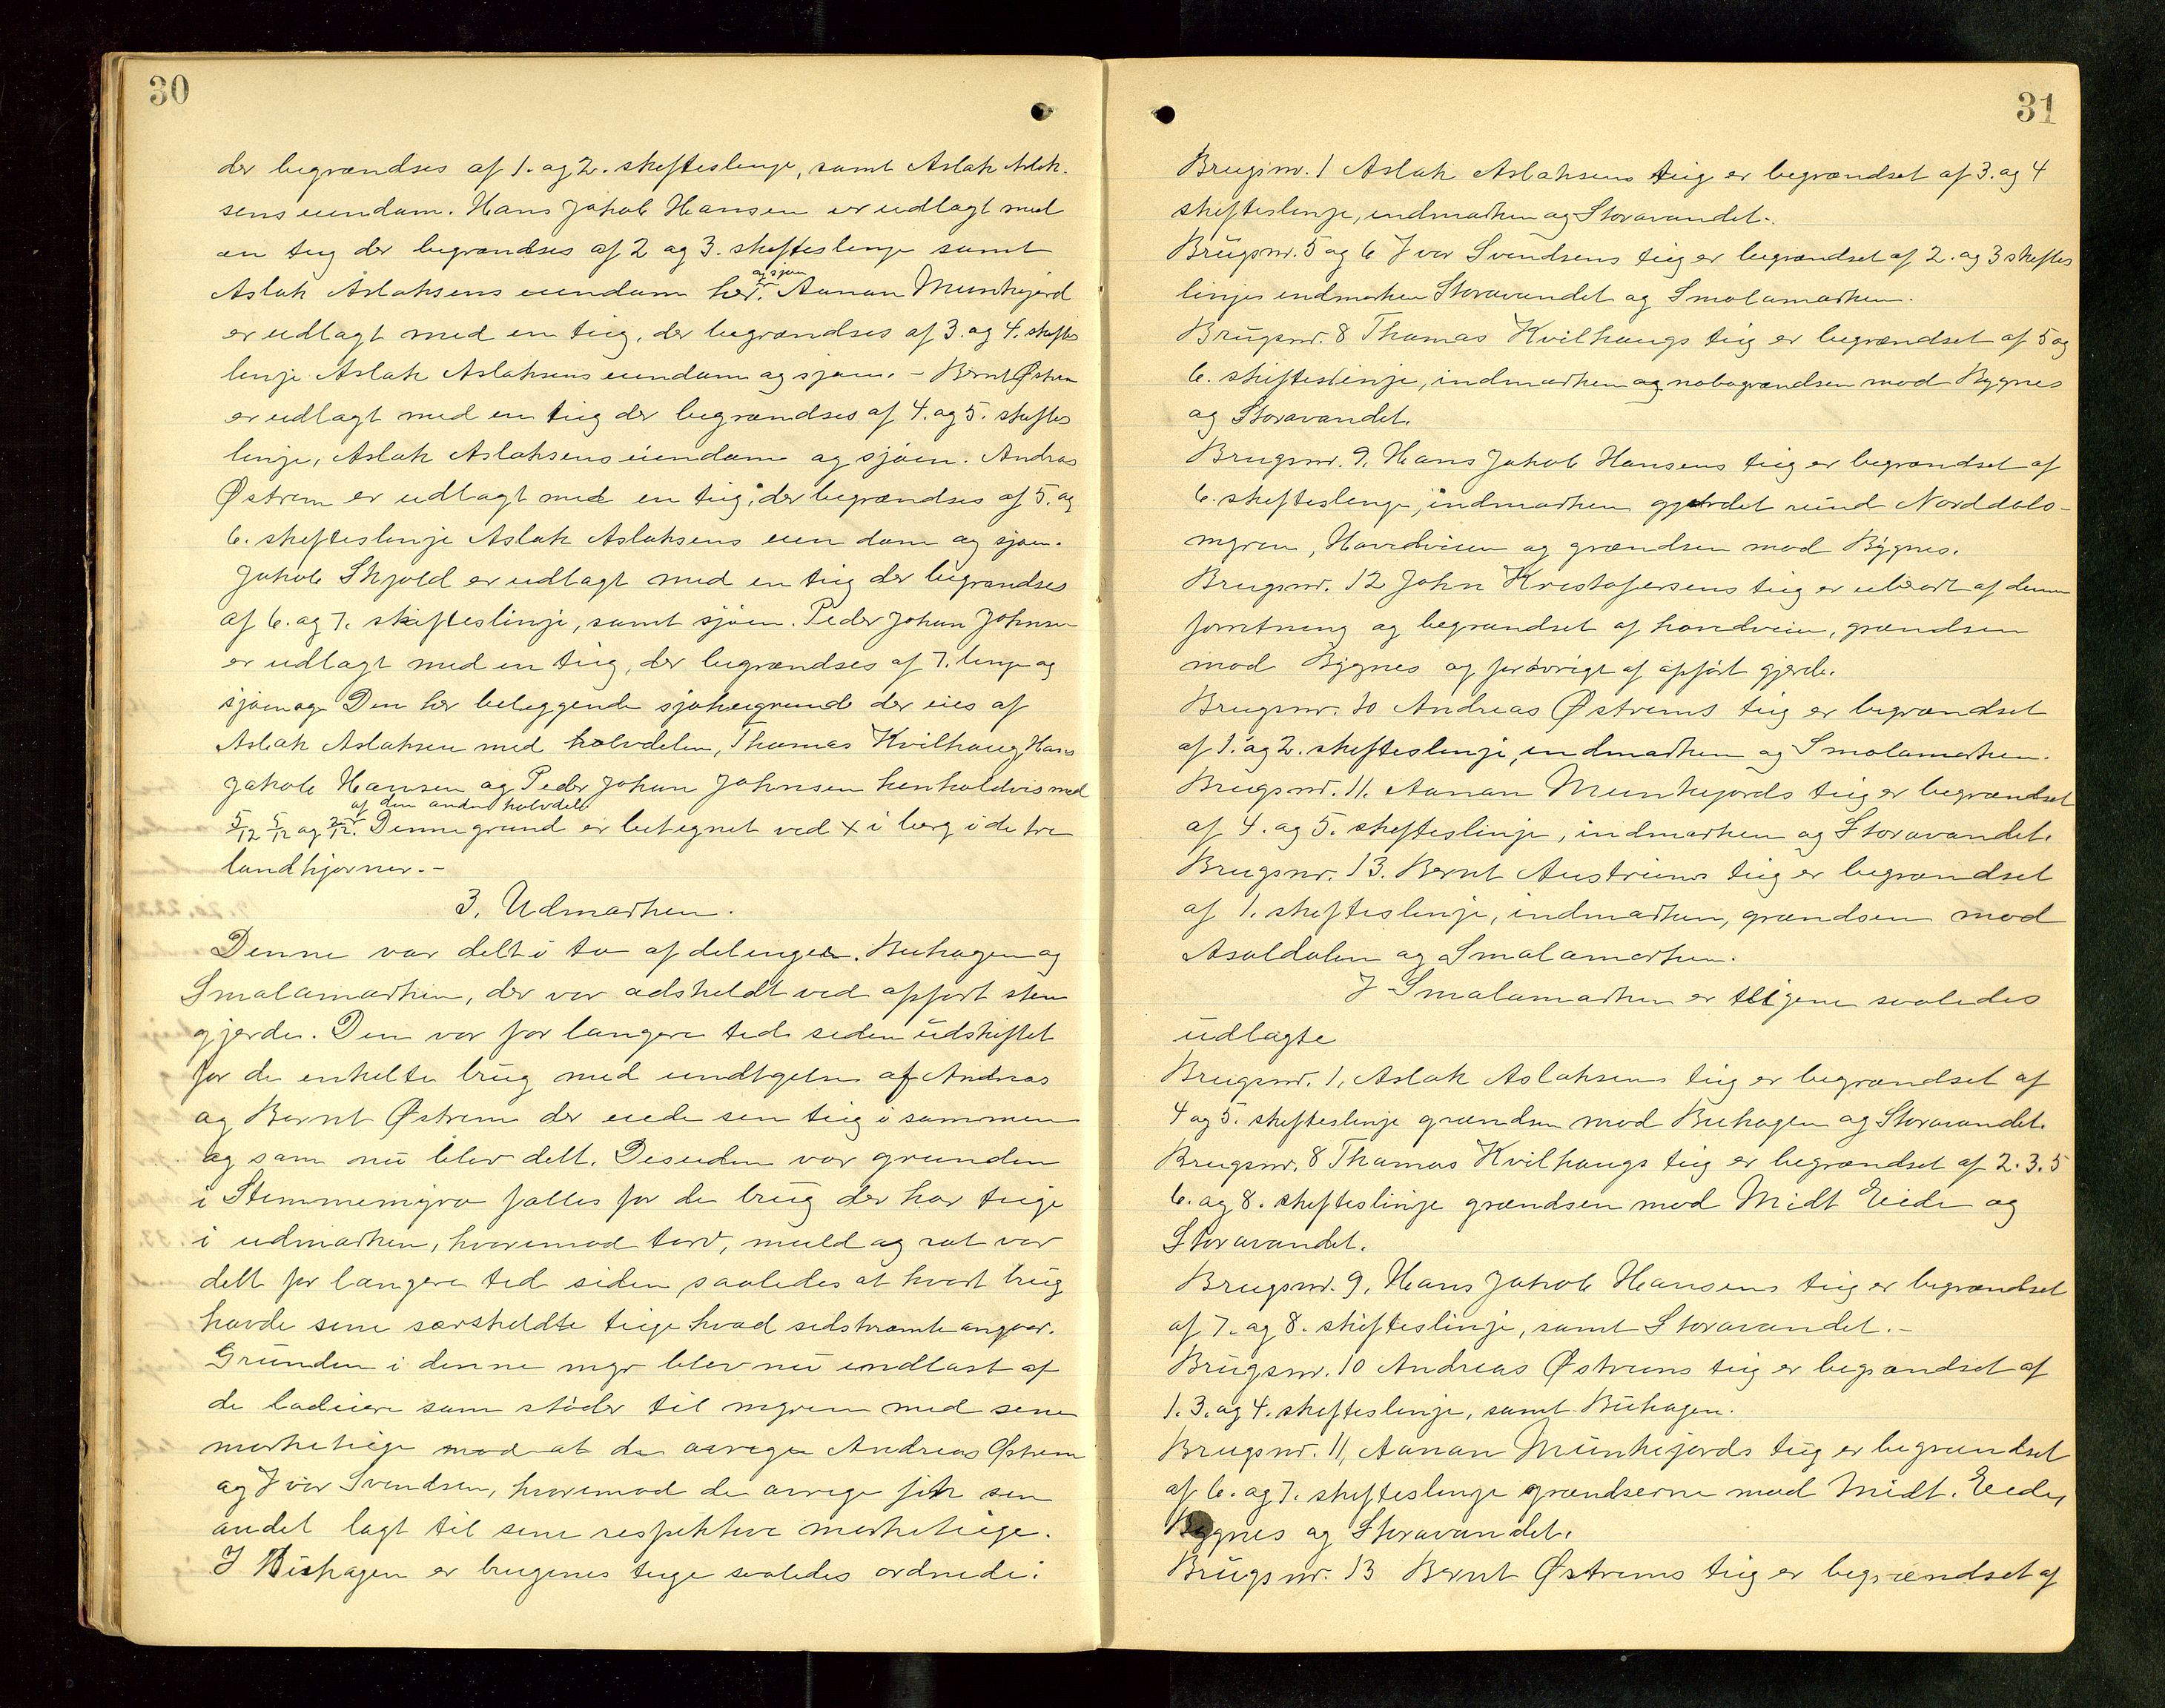 30
der begrændses af 1. og 2. skifteslinje, samt Aslak Aslak-
sens eiendom. Hans Jakob Hansen er udlagt med
en teig der begrændses af 2 og 3. skifteslinje samt
og sjøen
Aslak Aslaksens eiendom her. Aanon Munkejord
er udlagt med en teig, der begrændses af 3. og 4. skiftes
linje Aslak Aslaksens eiendom og sjøen. - Bernt Østrem
er udlagt med en teig der begrændses af 4. og 5. skiftes
linje, Aslak Aslaksens eiendom og sjøen. Andreas
Østrem er udlagt med en teig, der begrændses af 5. og
6. skifteslinje Aslak Aslaksens eiendom og sjøen.
Jakob Skjold er udlagt med en teig der begrændses
af 6. og 7. skifteslinje, samt sjøen. Peder Johan Johnsen
er udlagt med en teig, der begrændses af 7. linje og
sjøen og Den her beliggende sjøhusgrund der eies af
Aslak Aslaksen med halvdelen, Thomas Kvilhaug Hans
Jakob Hansen og Peder Johan Johnsen henholdvis med
af den anden halvdel.
5/12 5/12 og 2/12. Denne grund er betegnet ved x i berg i de tre
landhjørner. -
3. Udmarken.
Denne var delt i to afdelinger. Buhagen og
Smalamarken, der var adskeldt ved opført sten
gjerde. Den var for længere ted siden udskiftet
for de enkelte brug med undtgelse af Andreas
og Bernt Østrem der eiede sin teig i sammen
og som nu blev delt. Desuden var grunden
i Stemmemyra fælles for de brug der har teige
i udmarken, hvoremod torv, muld og rot var
delt for længere ted siden saaledes at hvert brug
havde sine særskeldte teige hvad sidstnævnte angaar.
Grunden i denne myr blev nu indløst af
de lodeiere som støder til myren med sine
marketeige mod at de overige Andreas Østrem
og Ivar Svendsen, hvoremod de øvrige fik sin
andel lagt til sine respektive marketeige.
I Buhagen er brugenes teige saaledes ordnede:
31
Brugsnr. 1 Aslak Aslaksens teig er begrændset af 3. og 4
skifteslinje, indmarken og Storavandet.
Brugsnr. 5 og 6 Ivar Svendsens teig er begrændset af 2. og 3 skiftes
linjer indmarken Storavandet og Smalamarken.
Brugsnr. 8 Thomas Kvilhaugs teig er begrændset af 5 og
6. skifteslinje, indmarken og nabogrændsen mod Bygnes
og Storavandet.
Brugsnr. 9. Hans Jakob Hansens teig er begrændset af
6. skifteslinje, indmarken gjerdet rund Norddals-
myren, Hovedveien og grændsen mod Bygnes.
Brugsnr. 12 John Kristofersens teig er uberørt af denne
forretning og begrændset af hovedveien, grændsen
mod Bygnes og forøvrigt af opført gjerde.
Brugsnr. 10 Andreas Østrems teig er begrændset
af 1. og 2. skifteslinje, indmarken og Smalamarken.
Brugsnr. 11. Aanon Munkejords teig er begrændset
af 4. og 5. skifteslinje, indmarken og Storavandet.
Brugsnr. 13. Bernt Austrems teig er begrændset
af 1. skifteslinje, indmarken, grændsen mod
Asaldalen og Smalamarken.
I Smalamarken er teigene saaledes
udlagte
Brugsnr. 1. Aslak Aslaksens teig er begrændset af
4 og 5. skifteslinje grændsen mod Buhagen og Storavandet.
Brugsnr. 8 Thomas Kvilhaugs teig er begrændset af 2. 3. 5
6. og 8. skifteslinje grændsen mod Midt Eide og
Storavandet.
Brugsnr. 9. Hans Jakob Hansens teig er begrændset
af 7. og 8. skifteslinje, samt Storavandet. -
Brugsnr. 10 Andreas Østrems teig er begrændset af
1. 3. og 4. skifteslinje, samt Buhagen.
Brugsnr. 11, Aanon Munkejords teig er begrændset
af 6. og 7. skifteslinje grændserne mod Midt. Eide,
Bygnes og Storavandet.
Brugsnr. 13 Bernt Østrems teig er begrændset af